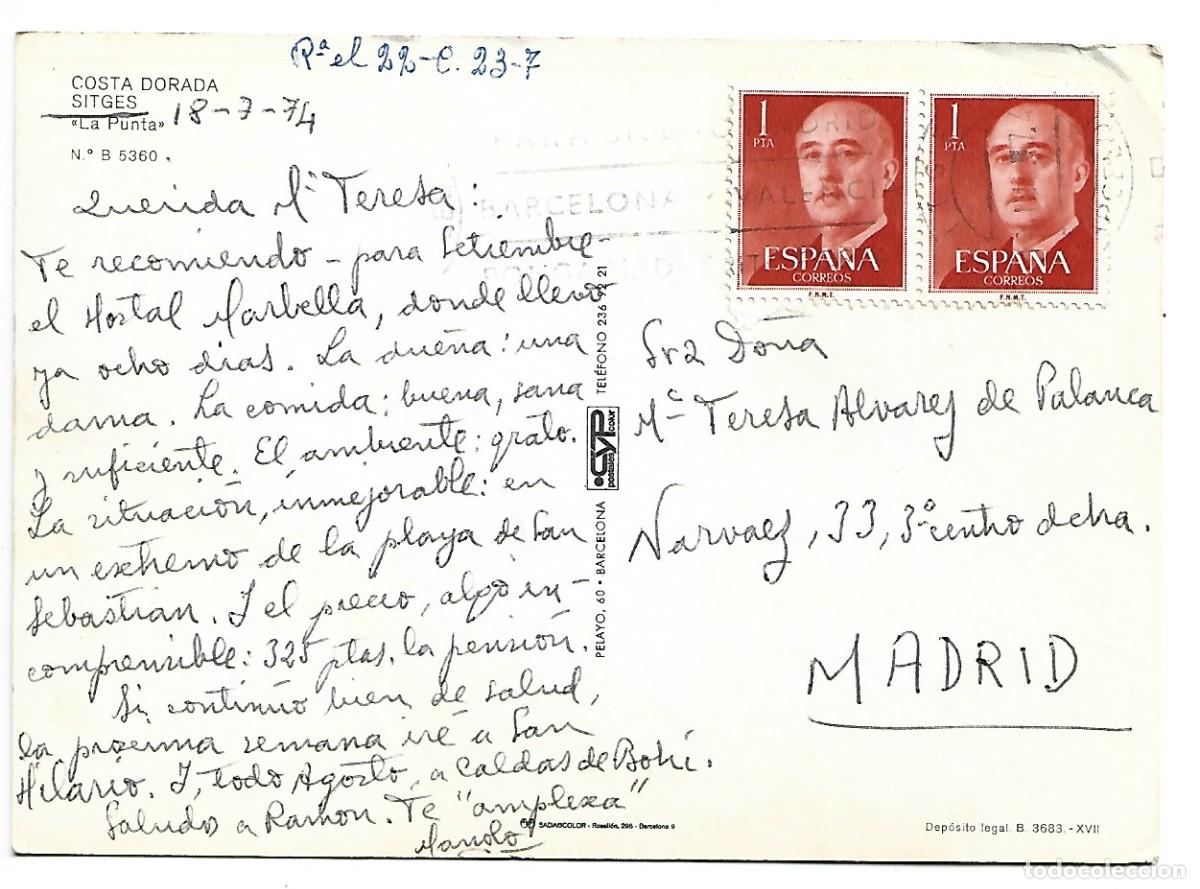 Rª el 22-C. 23-7
COSTA DORADA
SITGES
«La Punta» 18-7-74
N.º B 5360
Querida Mª Teresa:
Te recomiendo - para Setiembre -
el Hostal Marbella, donde llevo
ya ocho dias. La dueña: una
dama. La comida: buena, sana
y suficiente. El ambiente: grato.
La situación, inmejorable: en
un extremo de la playa de San
Sebastian. Y el precio, algo in-
comprensible: 325 ptas. la pensión.
Si continúo bien de salud,
la proxima semana iré a San
Hilario. Y, todo Agosto, a Caldas de Bohí.
Saludos a Ramon. Te "amplexa"
Manolo
PELAYO, 60 • BARCELONA
postales CYP color
TELÉFONO 236 92 21
1 PTA
ESPAÑA
CORREOS
F.N.M.T.
1 PTA
ESPAÑA
CORREOS
F.N.M.T.
BARCELONA
Sra Doña
Mª Teresa Alvarez de Palanca
Narvaez, 33, 3º centro dcha.
MADRID
SADAGCOLOR - Rosellón, 296 - Barcelona 9
Depósito legal. B. 3683. - XVII
todocoleccion